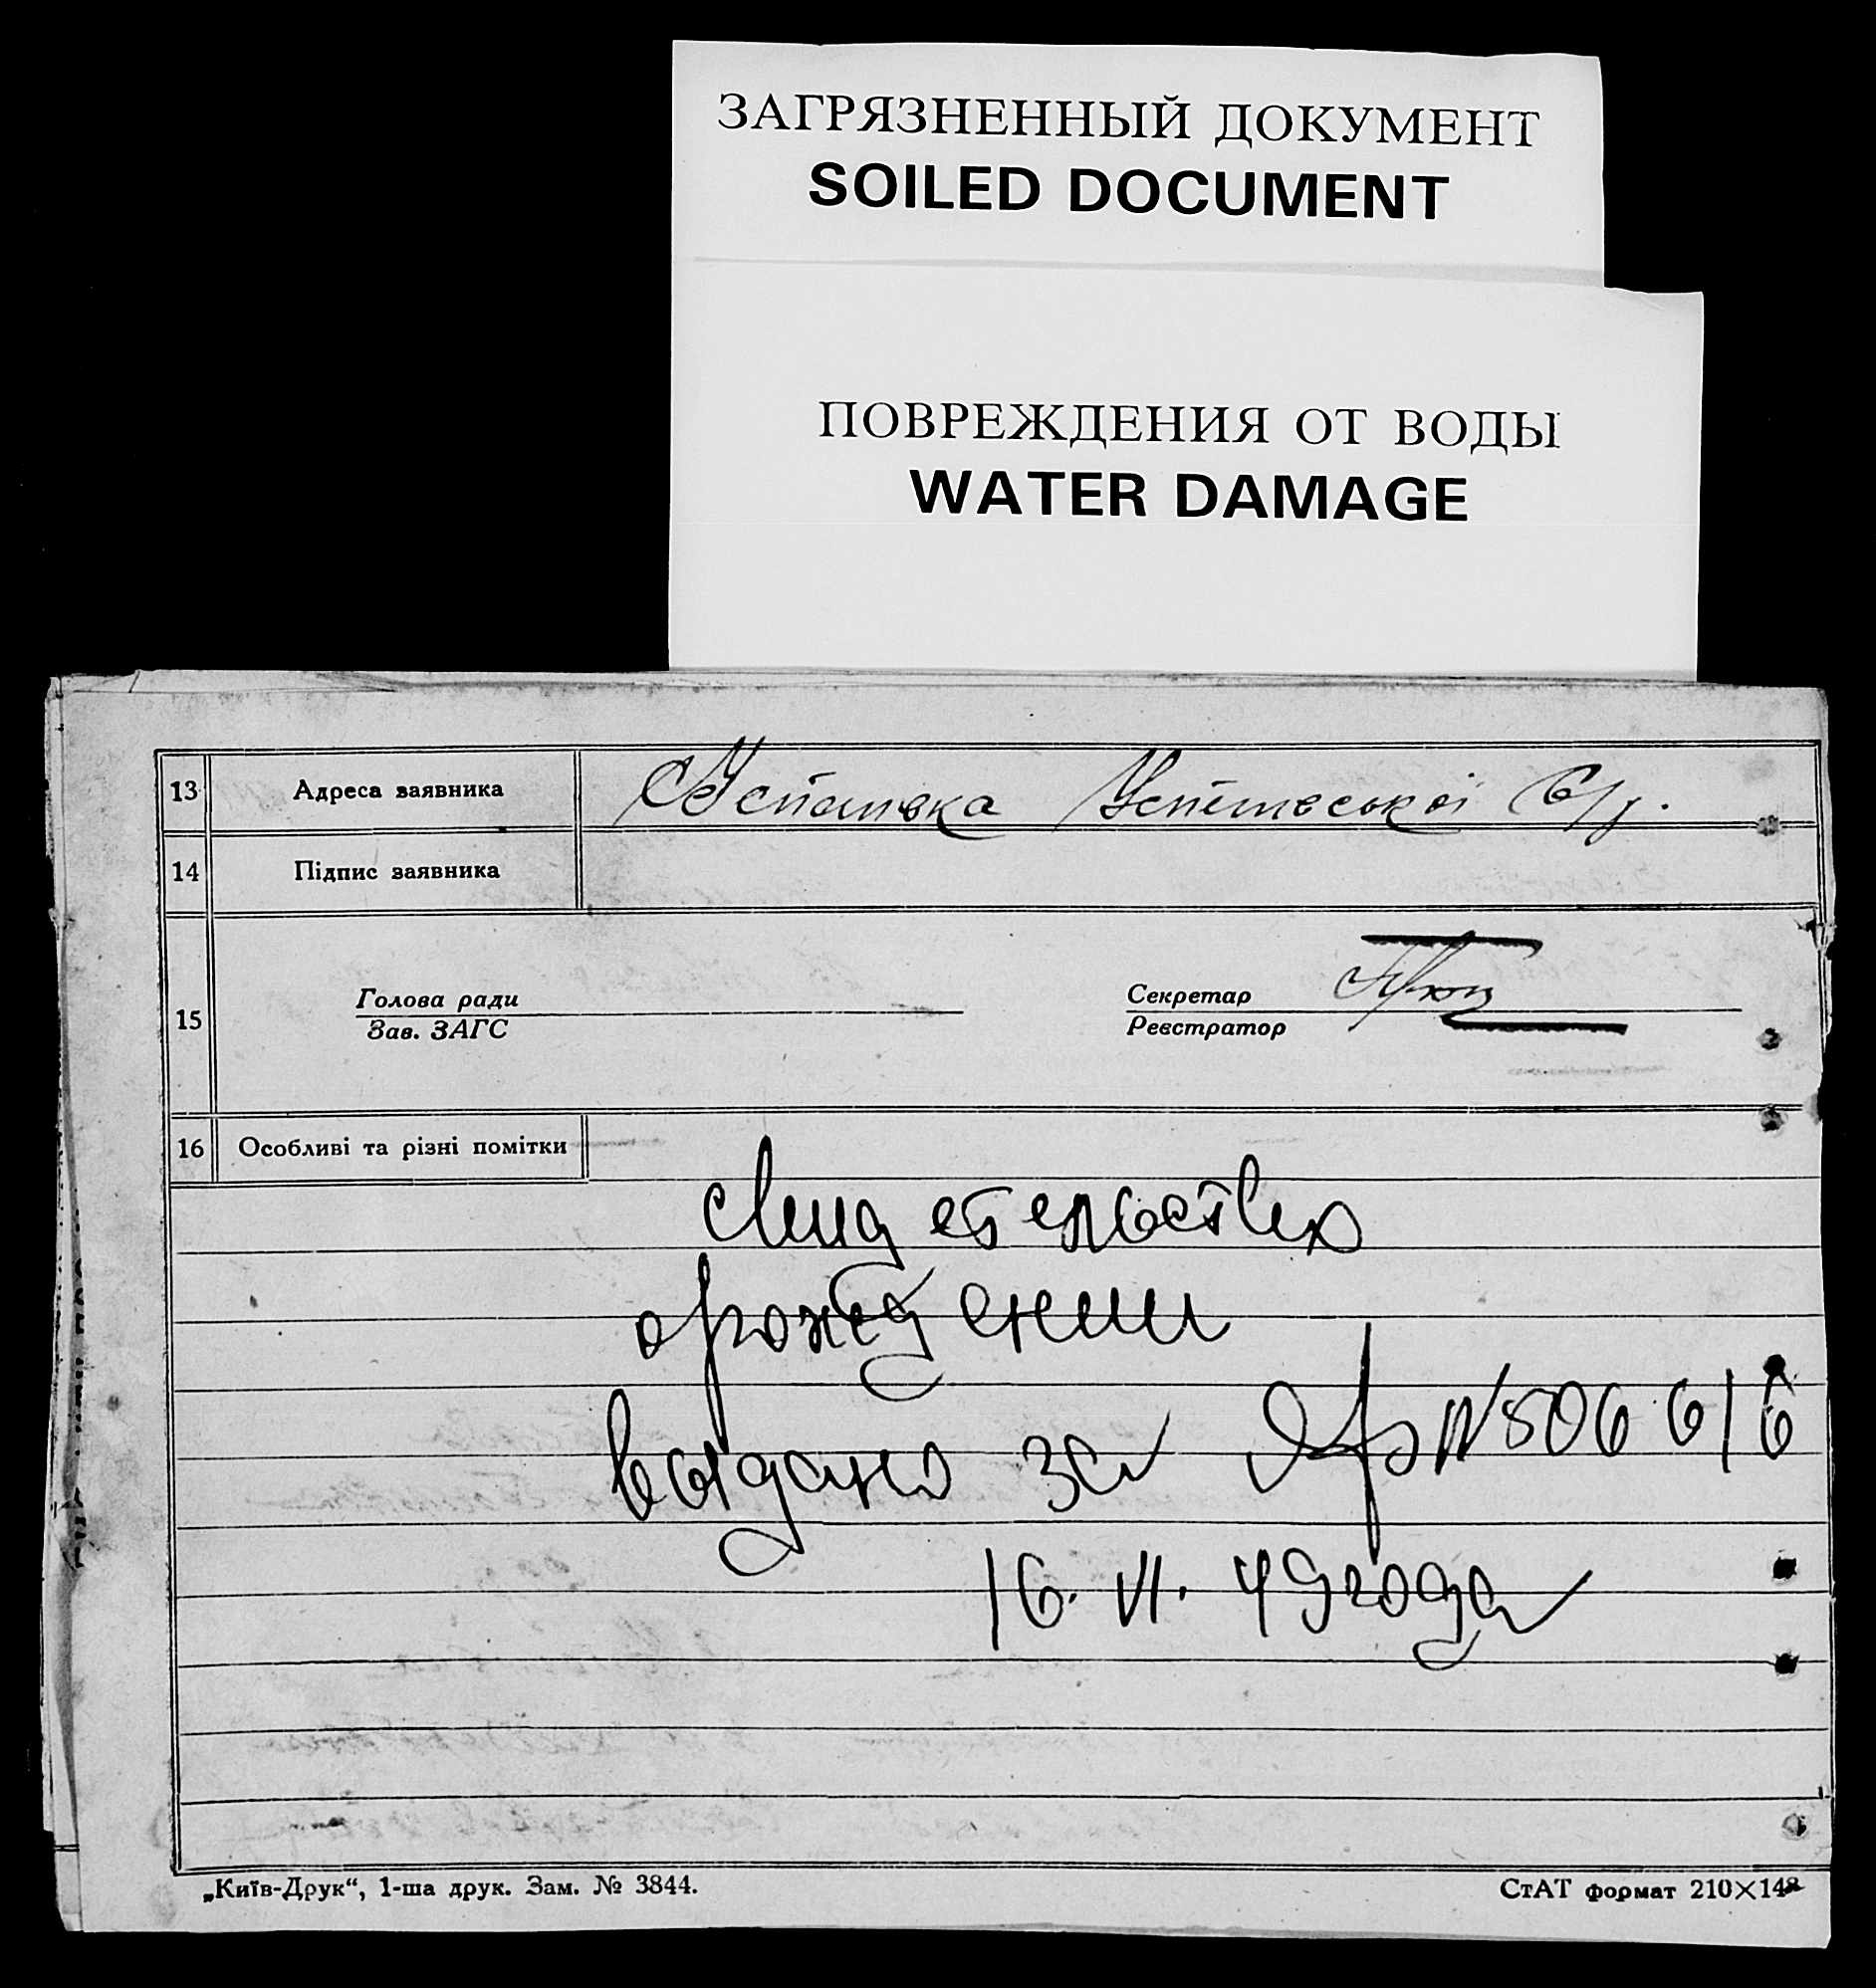 ЗАГРЯЗНЕННЫЙ ДОКУМЕНТ
SOILED DOCUMENT
ПОВРЕЖДЕНИЯ ОТ ВОДЫ
WATER DAMAGE
13 Адреса заявника С/
14 Підпис заявника
15 Голова ради Секретар
Зав. ЗАГС Реєстратор
16 Особливі та різні помітки
свидетельство
о рождении
выдано за № 506616
16. VI. 49 года
„Київ-Друк“, 1-ша друк. Зам. № 3844. СтАТ формат 210×148